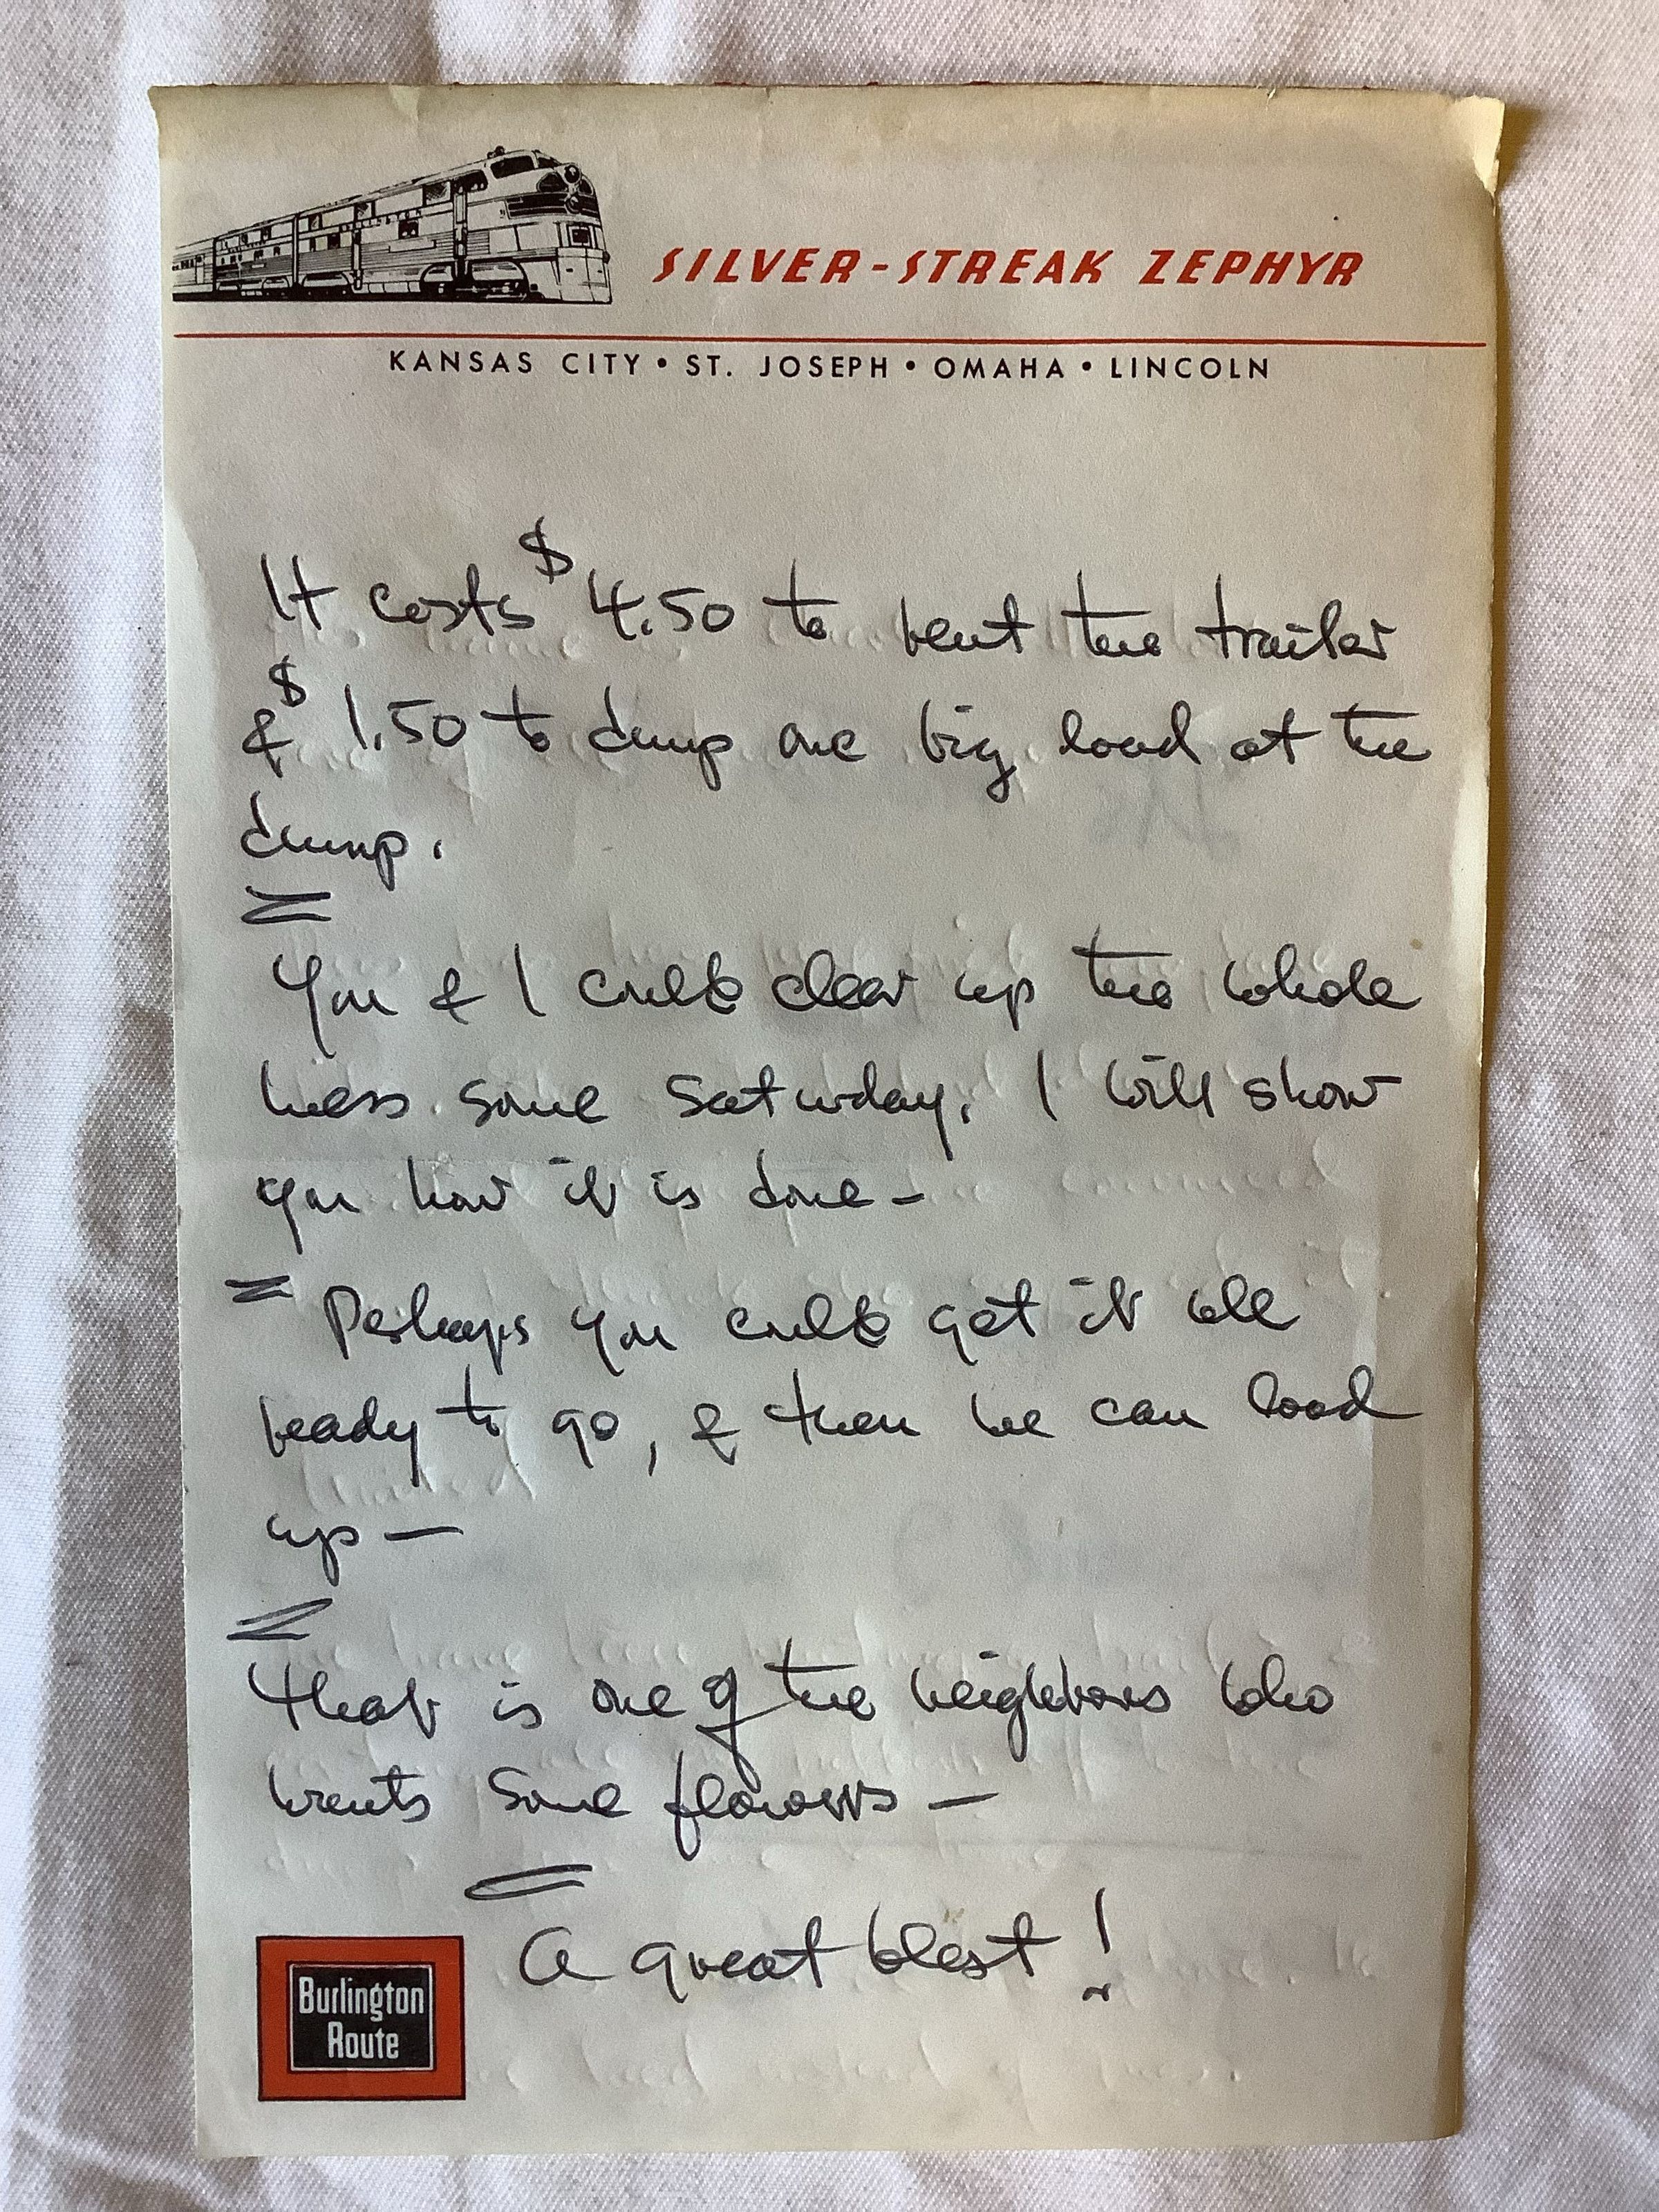 SILVER-STREAK ZEPHYR
KANSAS CITY • ST. JOSEPH • OMAHA • LINCOLN
It costs $4.50 to rent the trailer
& $1.50 to dump one big load at the
dump.
You & I could clear up the whole
mess some Saturday. I will show
you how it is done —
Perhaps you could get it all
ready to go, & then we can load
up —
That is one of the neighbors who
wants some flowers —
A great blast!
Burlington
Route